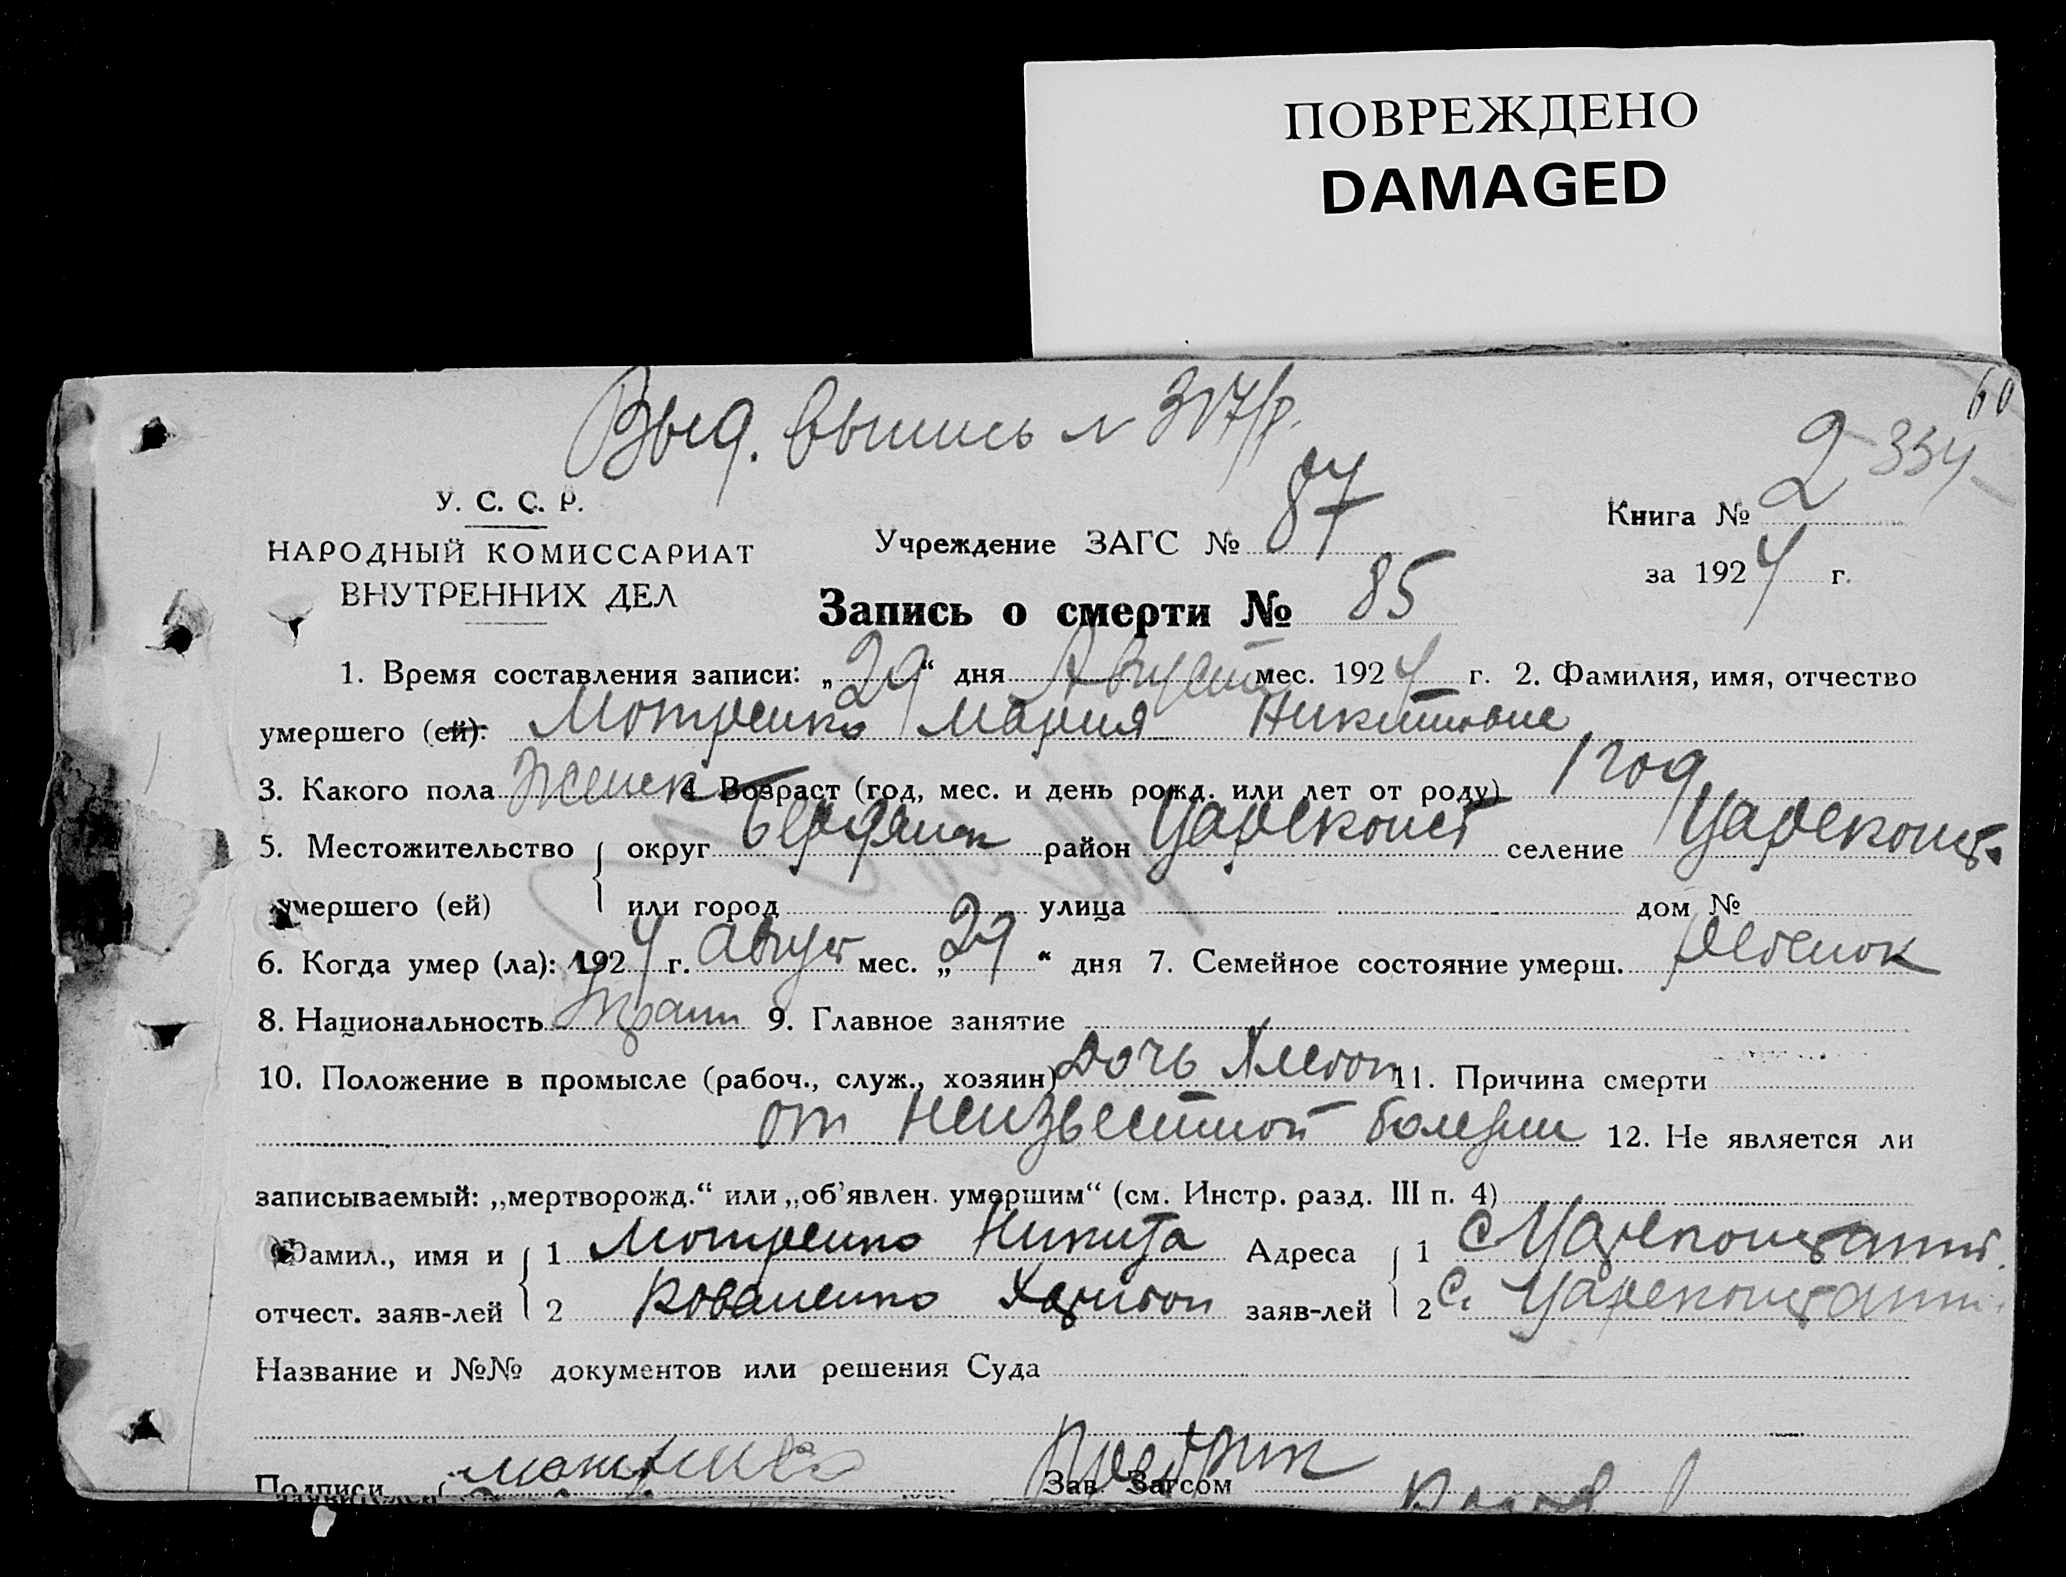 ПОВРЕЖДЕНО
DAMAGED
60
Выд. выпись №
2 334
У. С. С. Р.
НАРОДНЫЙ КОМИССАРИАТ
ВНУТРЕННИХ ДЕЛ
Учреждение ЗАГС № 87
Книга № 
за 1924 г.
Запись о смерти № 85
1. Время составления записи: „29“ дня Августа мес. 1924 г. 2. Фамилия, имя, отчество
умершего (ей): Мотренко Мария Никитовна
3. Какого пола Женск 4 Возраст (год, мес. и день рожд. или лет от роду) 1 год
5. Местожительство округ Бердянск район Цареконст селение Цареконст.
умершего (ей) или город улица дом №
6. Когда умер (ла): 1924 г. Август мес. „29“ дня 7. Семейное состояние умерш. ребенок
8. Национальность 9. Главное занятие
10. Положение в промысле (рабоч., служ., хозяин) Дочь Хлебоп 11. Причина смерти
от неизвестной болезни 12. Не является ли
записываемый: „мертворожд.“ или „об'явлен. умершим“ (см. Инстр. разд. III п. 4)
Фамил., имя и 1 Мотренко Никита Адреса 1 с Цареконстант.
отчест. заяв-лей 2 Коваленко Харитон заяв-лей 2 с. Цареконстант.
Название и №№ документов или решения Суда
Подписи Мотренко Зав. Загсом